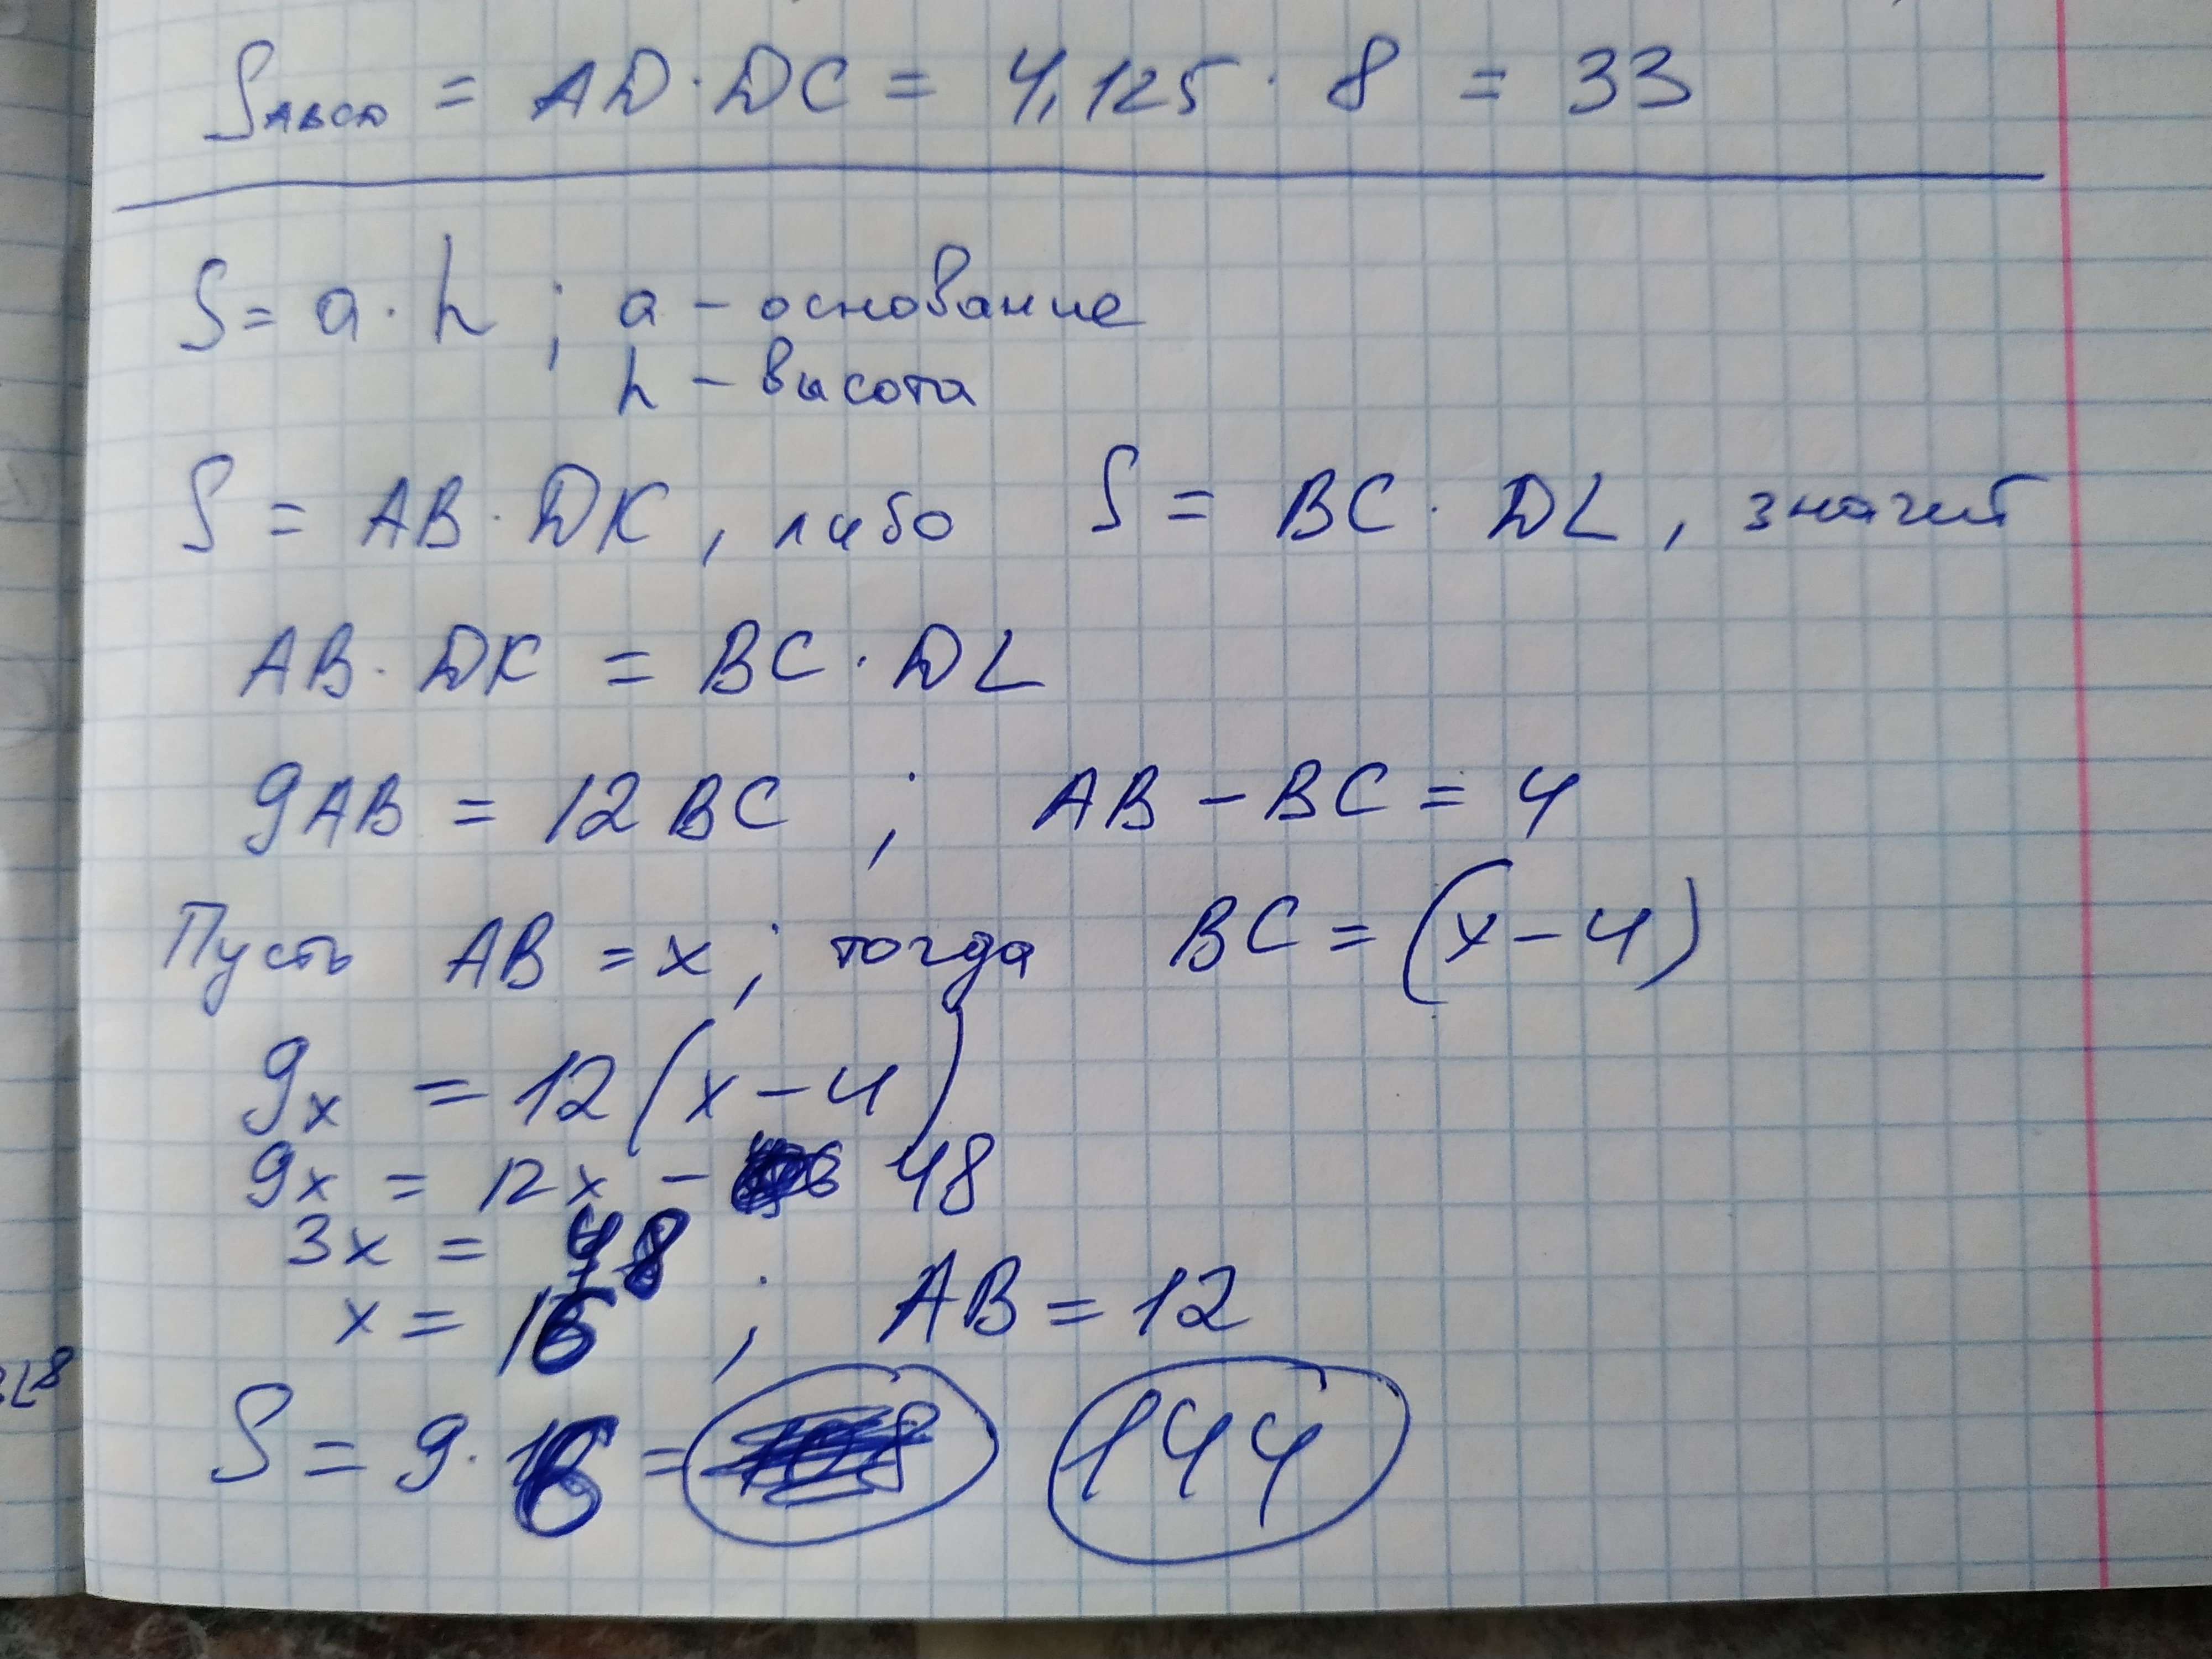 S ABCD = AD · DC = 4,125 · 8 = 33
S = a · h ; a – основание
h – высота
S = AB · DK , либо S = BC · DL , значит
AB · DK = BC · DL
9AB = 12 BC ; AB – BC = 4
Пусть AB = x ; тогда BC = (x – 4)
9x = 12 (x – 4)
9x = 12x – 48
3x = 48
x = 16 ; AB = 12
S = 9 · 16 = 144